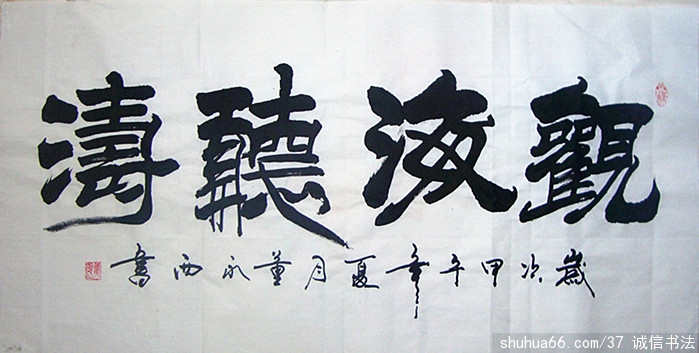 觀海聽濤
歲次甲午年夏月董永西書
shuhua66.com/37 诚信书法